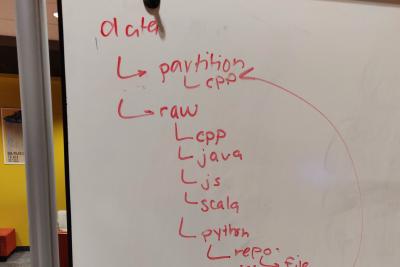 data
partition
cpp
raw
cpp
java
js
scala
python
repo
file